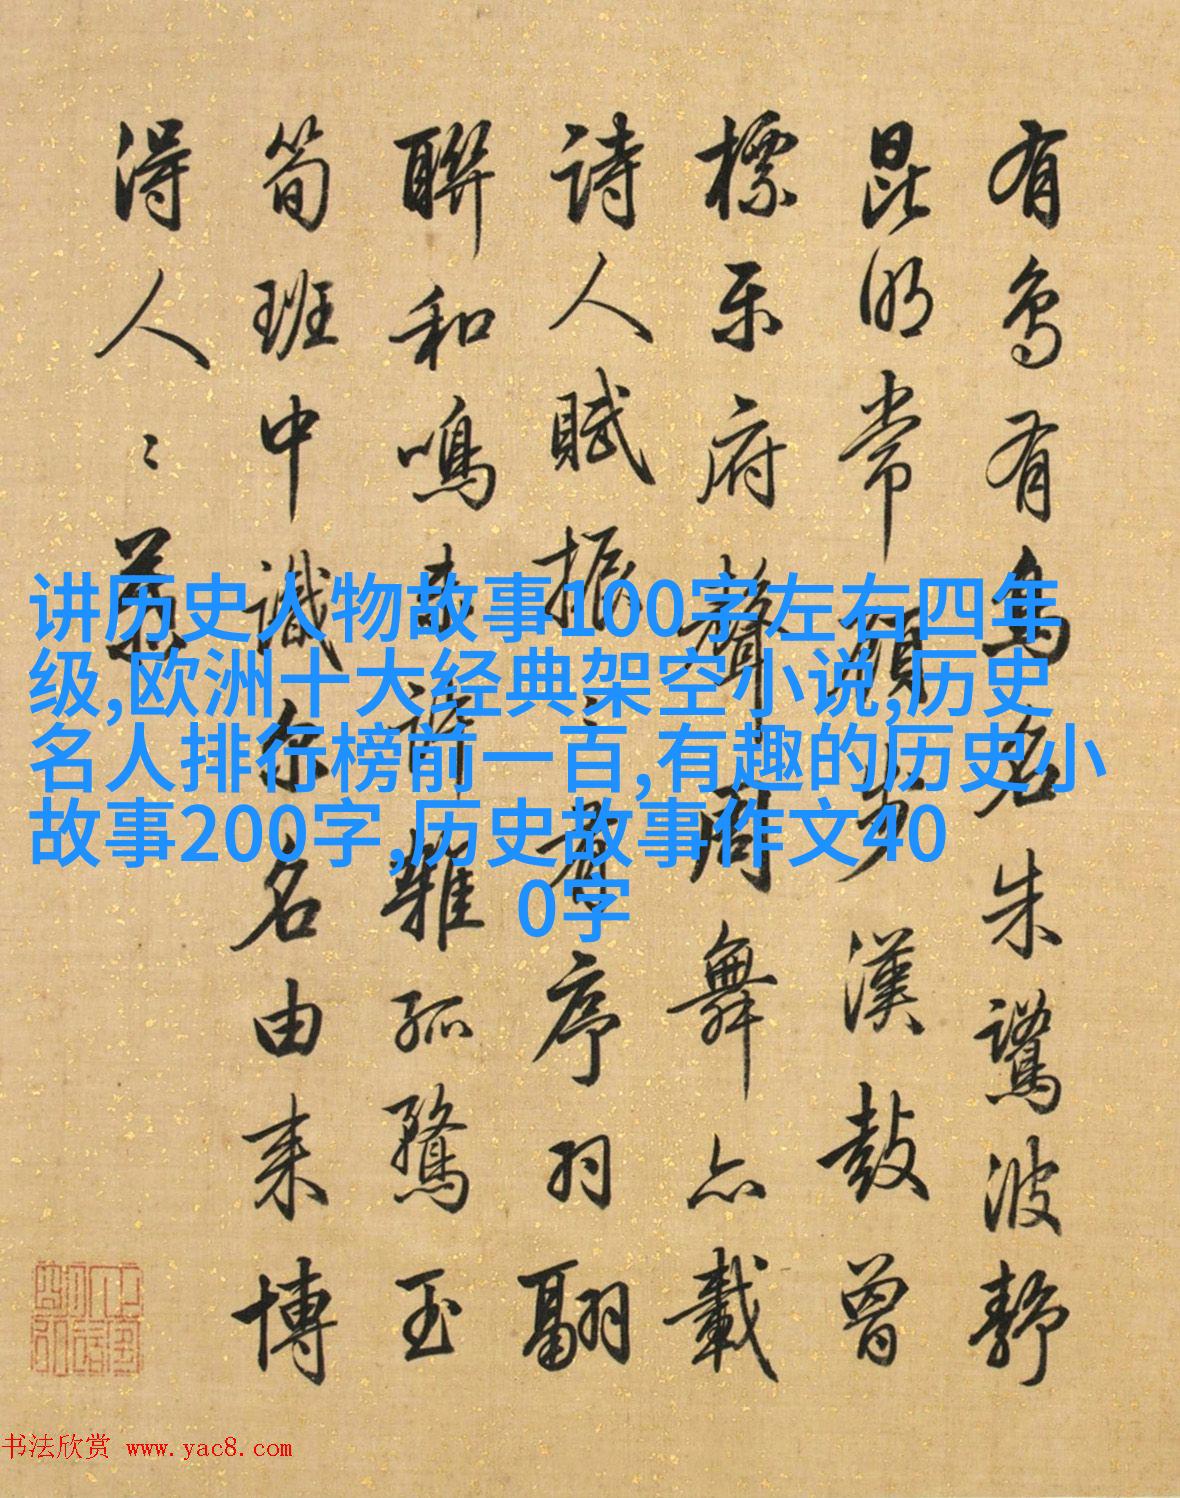 有鳥有鳥名朱鷺波靜
昆明常顧步漢鼓曾
標乐府聲周舞亦載
詩人賦振之育序羽翮
聯和鳴壽許難孤鶩玉
筍班中識余名由来博
得人〻慕
讲历史人物故事100字左右四年
级,欧洲十大经典架空小说,历史
名人排行榜前一百,有趣的历史小
故事200字,历史故事作文40
0字
书法欣赏 www.yac8.com